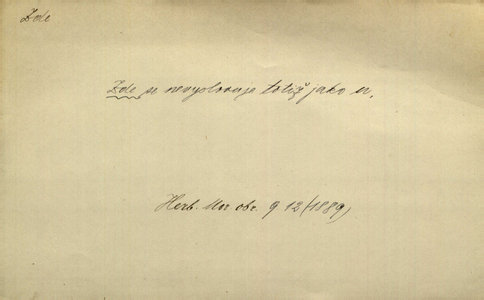 Zde
Zde se nevyslovuje totiž jako u.
Herb. Mor obr. 9 12 (1889)